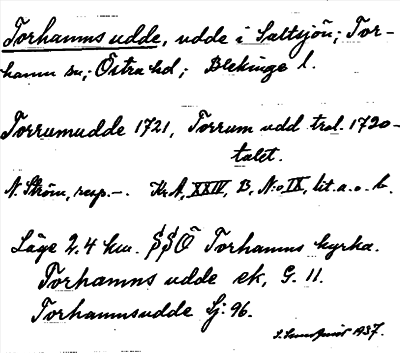 Torhamns udde, udde i Saltsjön; Tor-
hamn sn; Östra hd; Blekinge l.
Torrumudde 1721, Torrum udd trol. 1720-
talet.
N. Ström, resp. -. Kr. A, XXIV, B, N:o IX, lit. a. o. b.
Läge 2.4 km. SSÖ Torhamns kyrka.
Torhamns udde ek, G. 11.
Torhamnsudde Sj. 96.
1937.